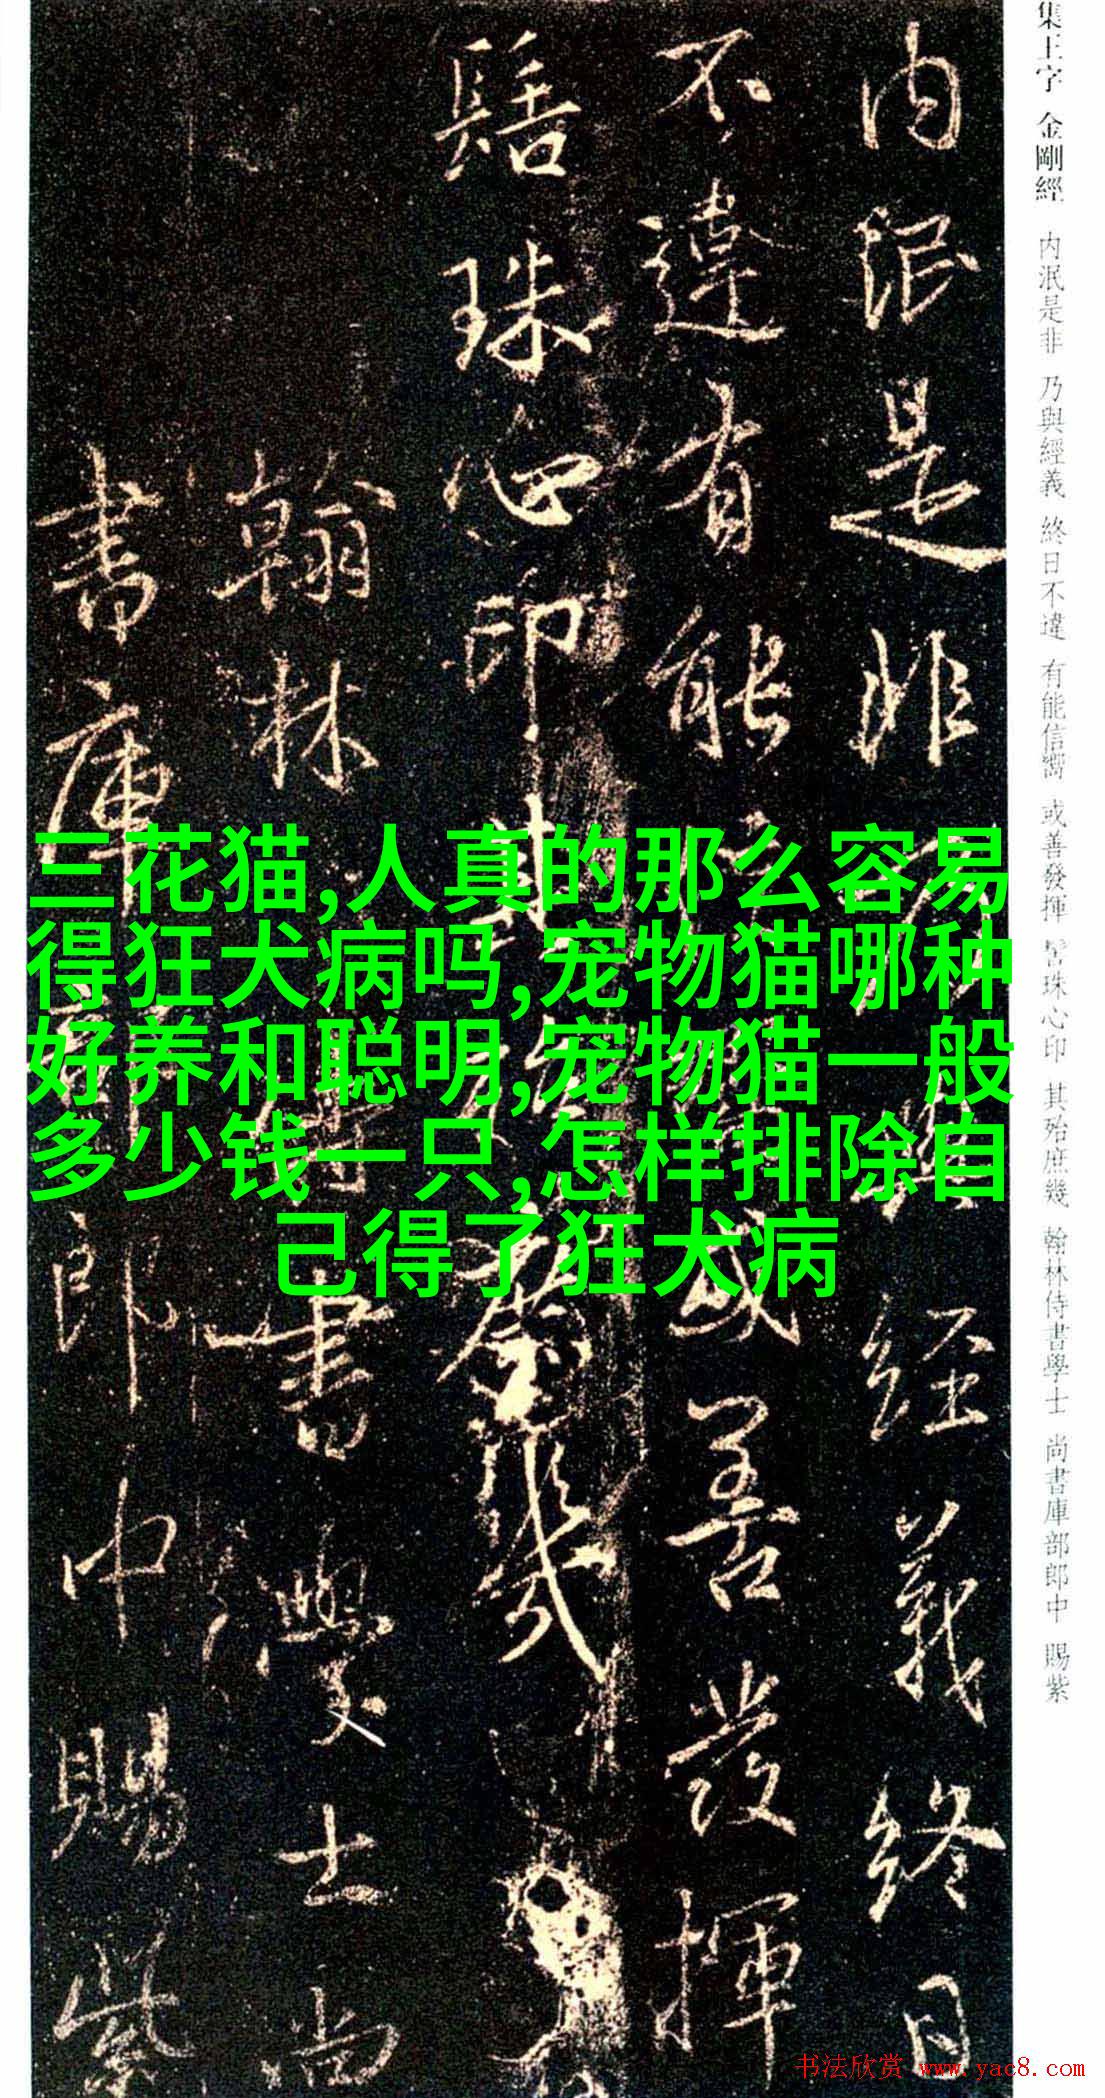 集王字 金剛經 内泯是非 乃與經義 終日不違 有能信嚮 或善發揮 髻珠心印 其殆庶幾 翰林侍書學士 尚書庫部郎中 賜紫
内泯是非乃與經義終日
不違有能信嚮或善發揮
髻珠心印其殆庶幾
翰林侍書學士尚
書庫部郎中賜紫
三花猫,人真的那么容易
得狂犬病吗,宠物猫哪种
好养和聪明,宠物猫一般
多少钱一只,怎样排除自
己得了狂犬病
书法欣赏 www.yac8.com